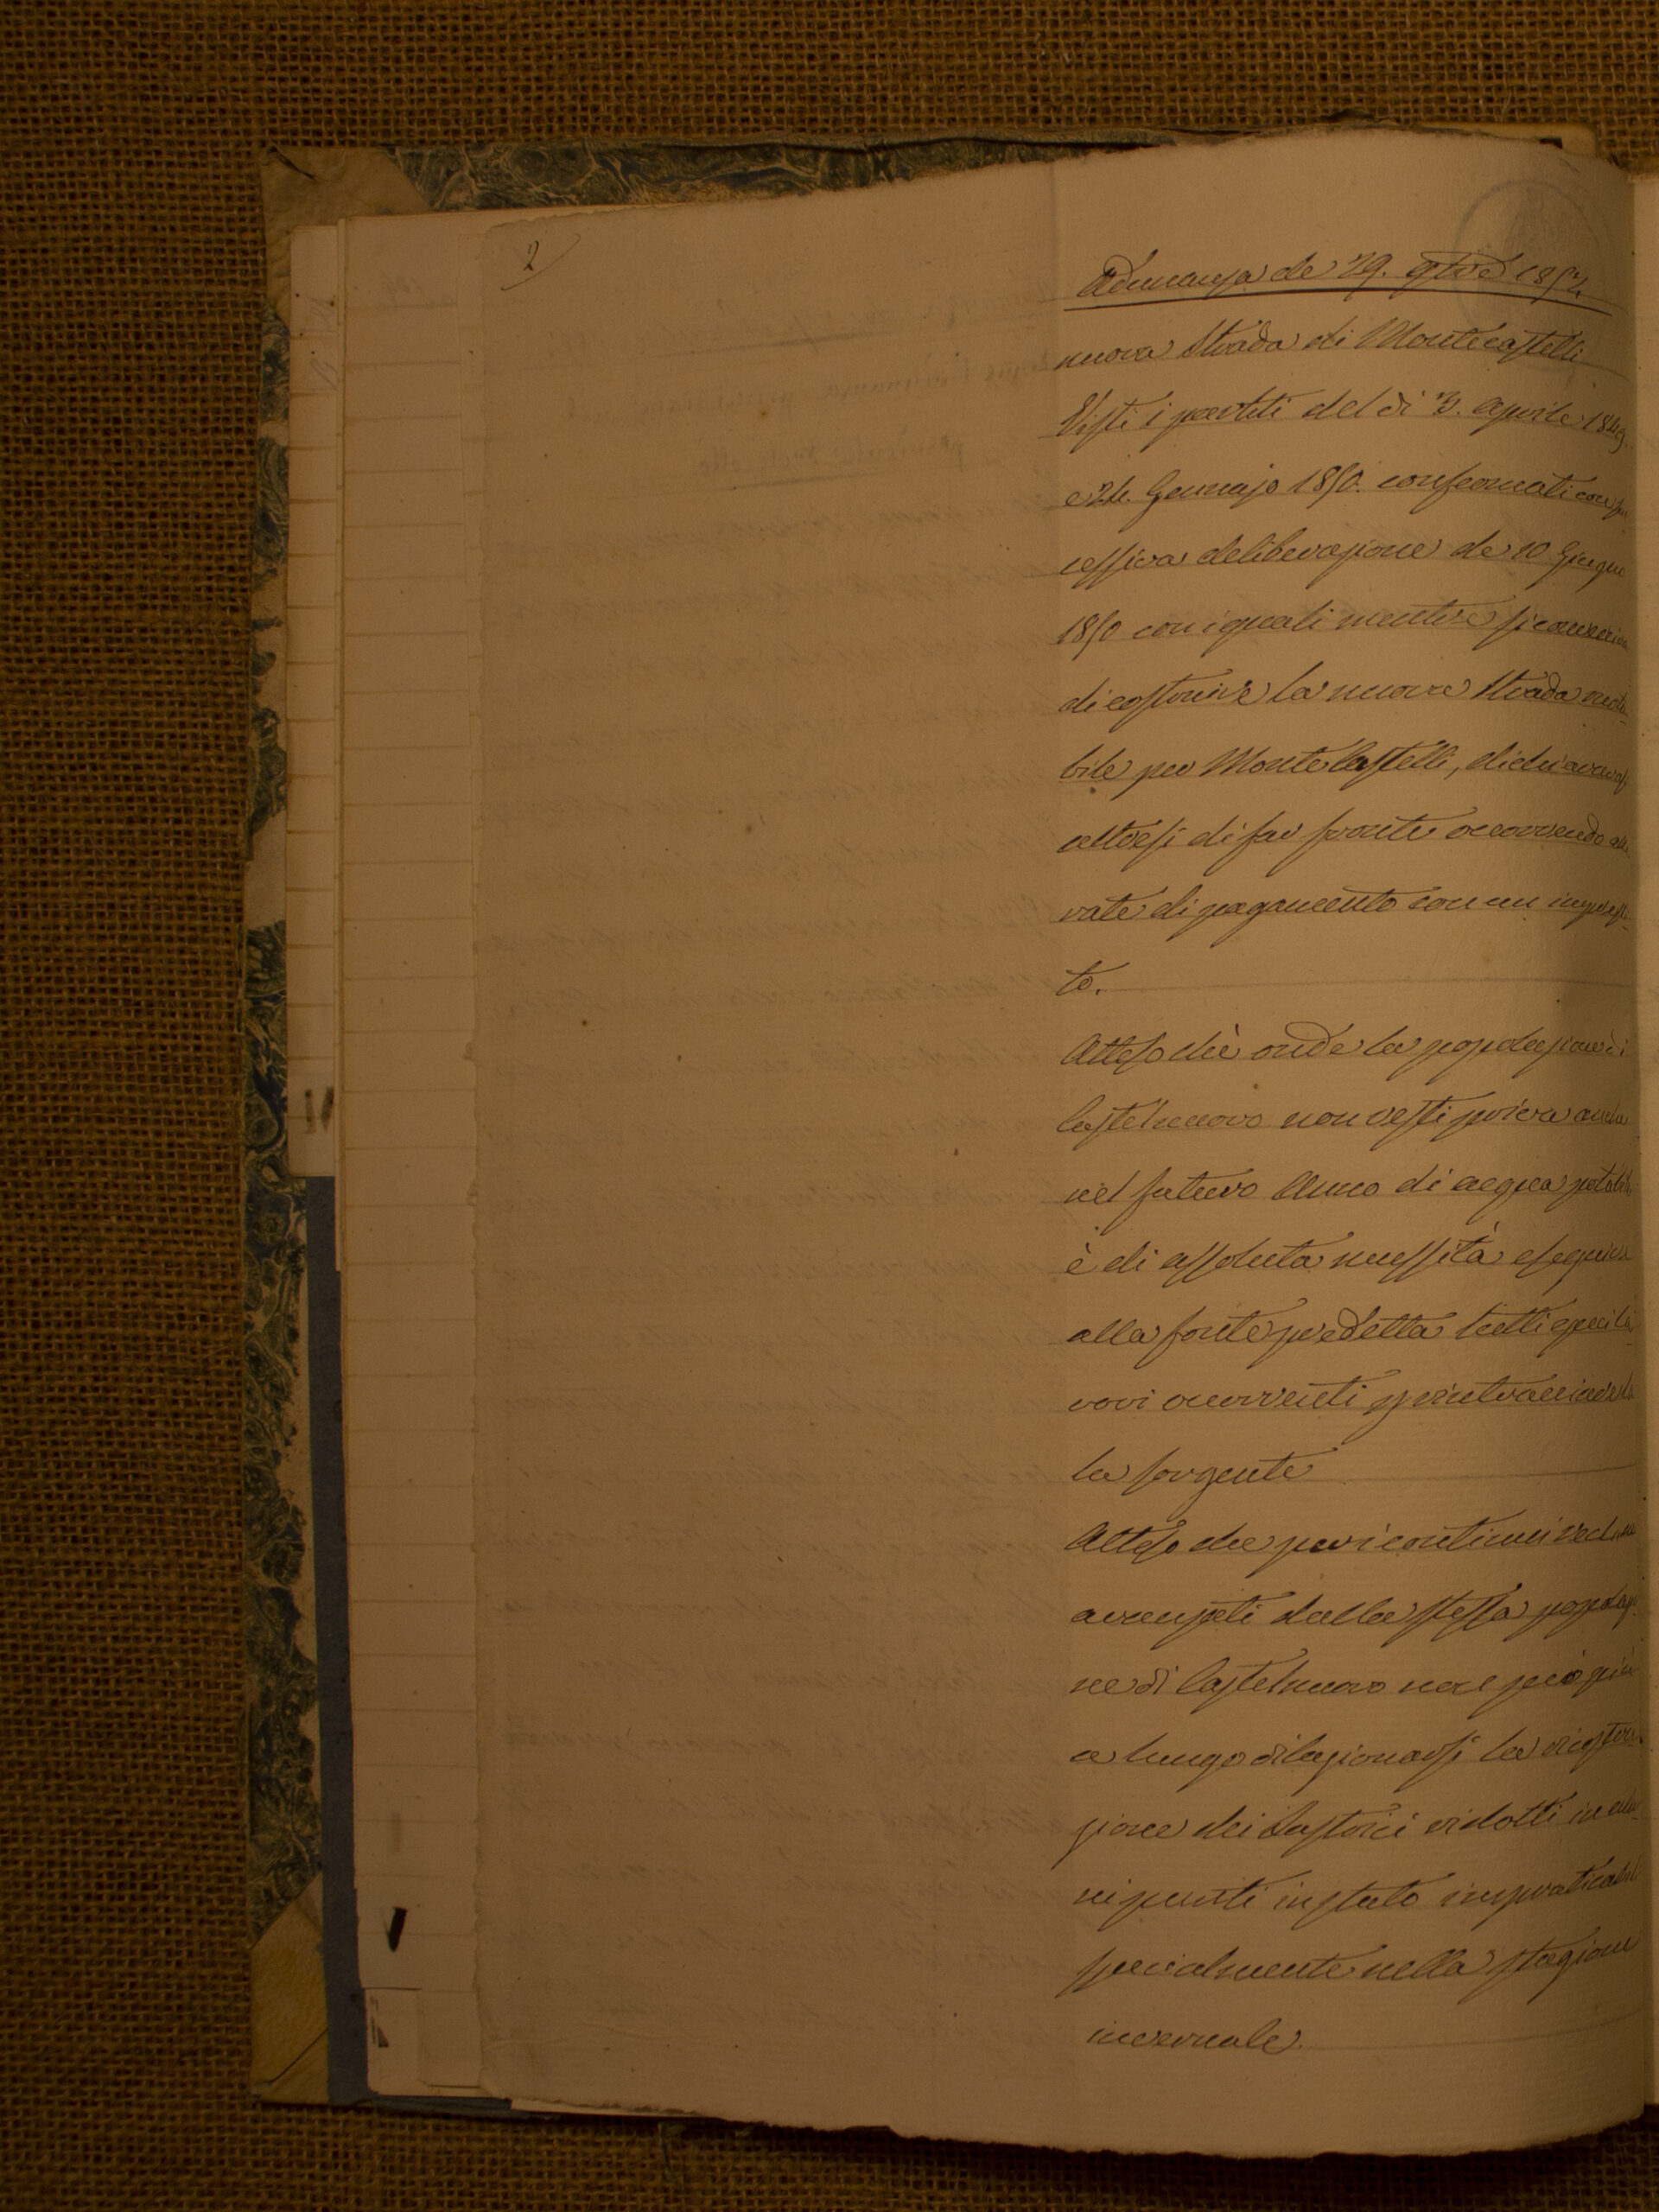 2
Adunanza de 29. 9bre 1852
nuova Strada di Montecastelli
Visti i partiti del dì 3. aprile 1849
e 24. Gennajo 1850. confermati con suc
cessiva deliberazione de 10 Giugno
1850 con i quali mentre si conveniva
di costruire la nuova Strada rota-
bile per Monte Castelli, dichiaravasi
altresì di far fronte occorrendo alle
rate di pagamento con un impresti-
to.
Atteso chè onde la popolazione di
Castelnuovo non resti priva anche
nel futuro Anno di acqua potabile,
è di assoluta necessità eseguire
alla fonte predetta tutti quei la-
vori occorrenti per rintracciare
la sorgente
Atteso che per i continui reclami
avanzati dalla stessa popolazio
ne di Castelnuovo non può più
a lungo dilazionarsi la
zione dei Lastrici ridotti in alcu-
ni punti in stato impraticabile
specialmente nella stagione
invernale.